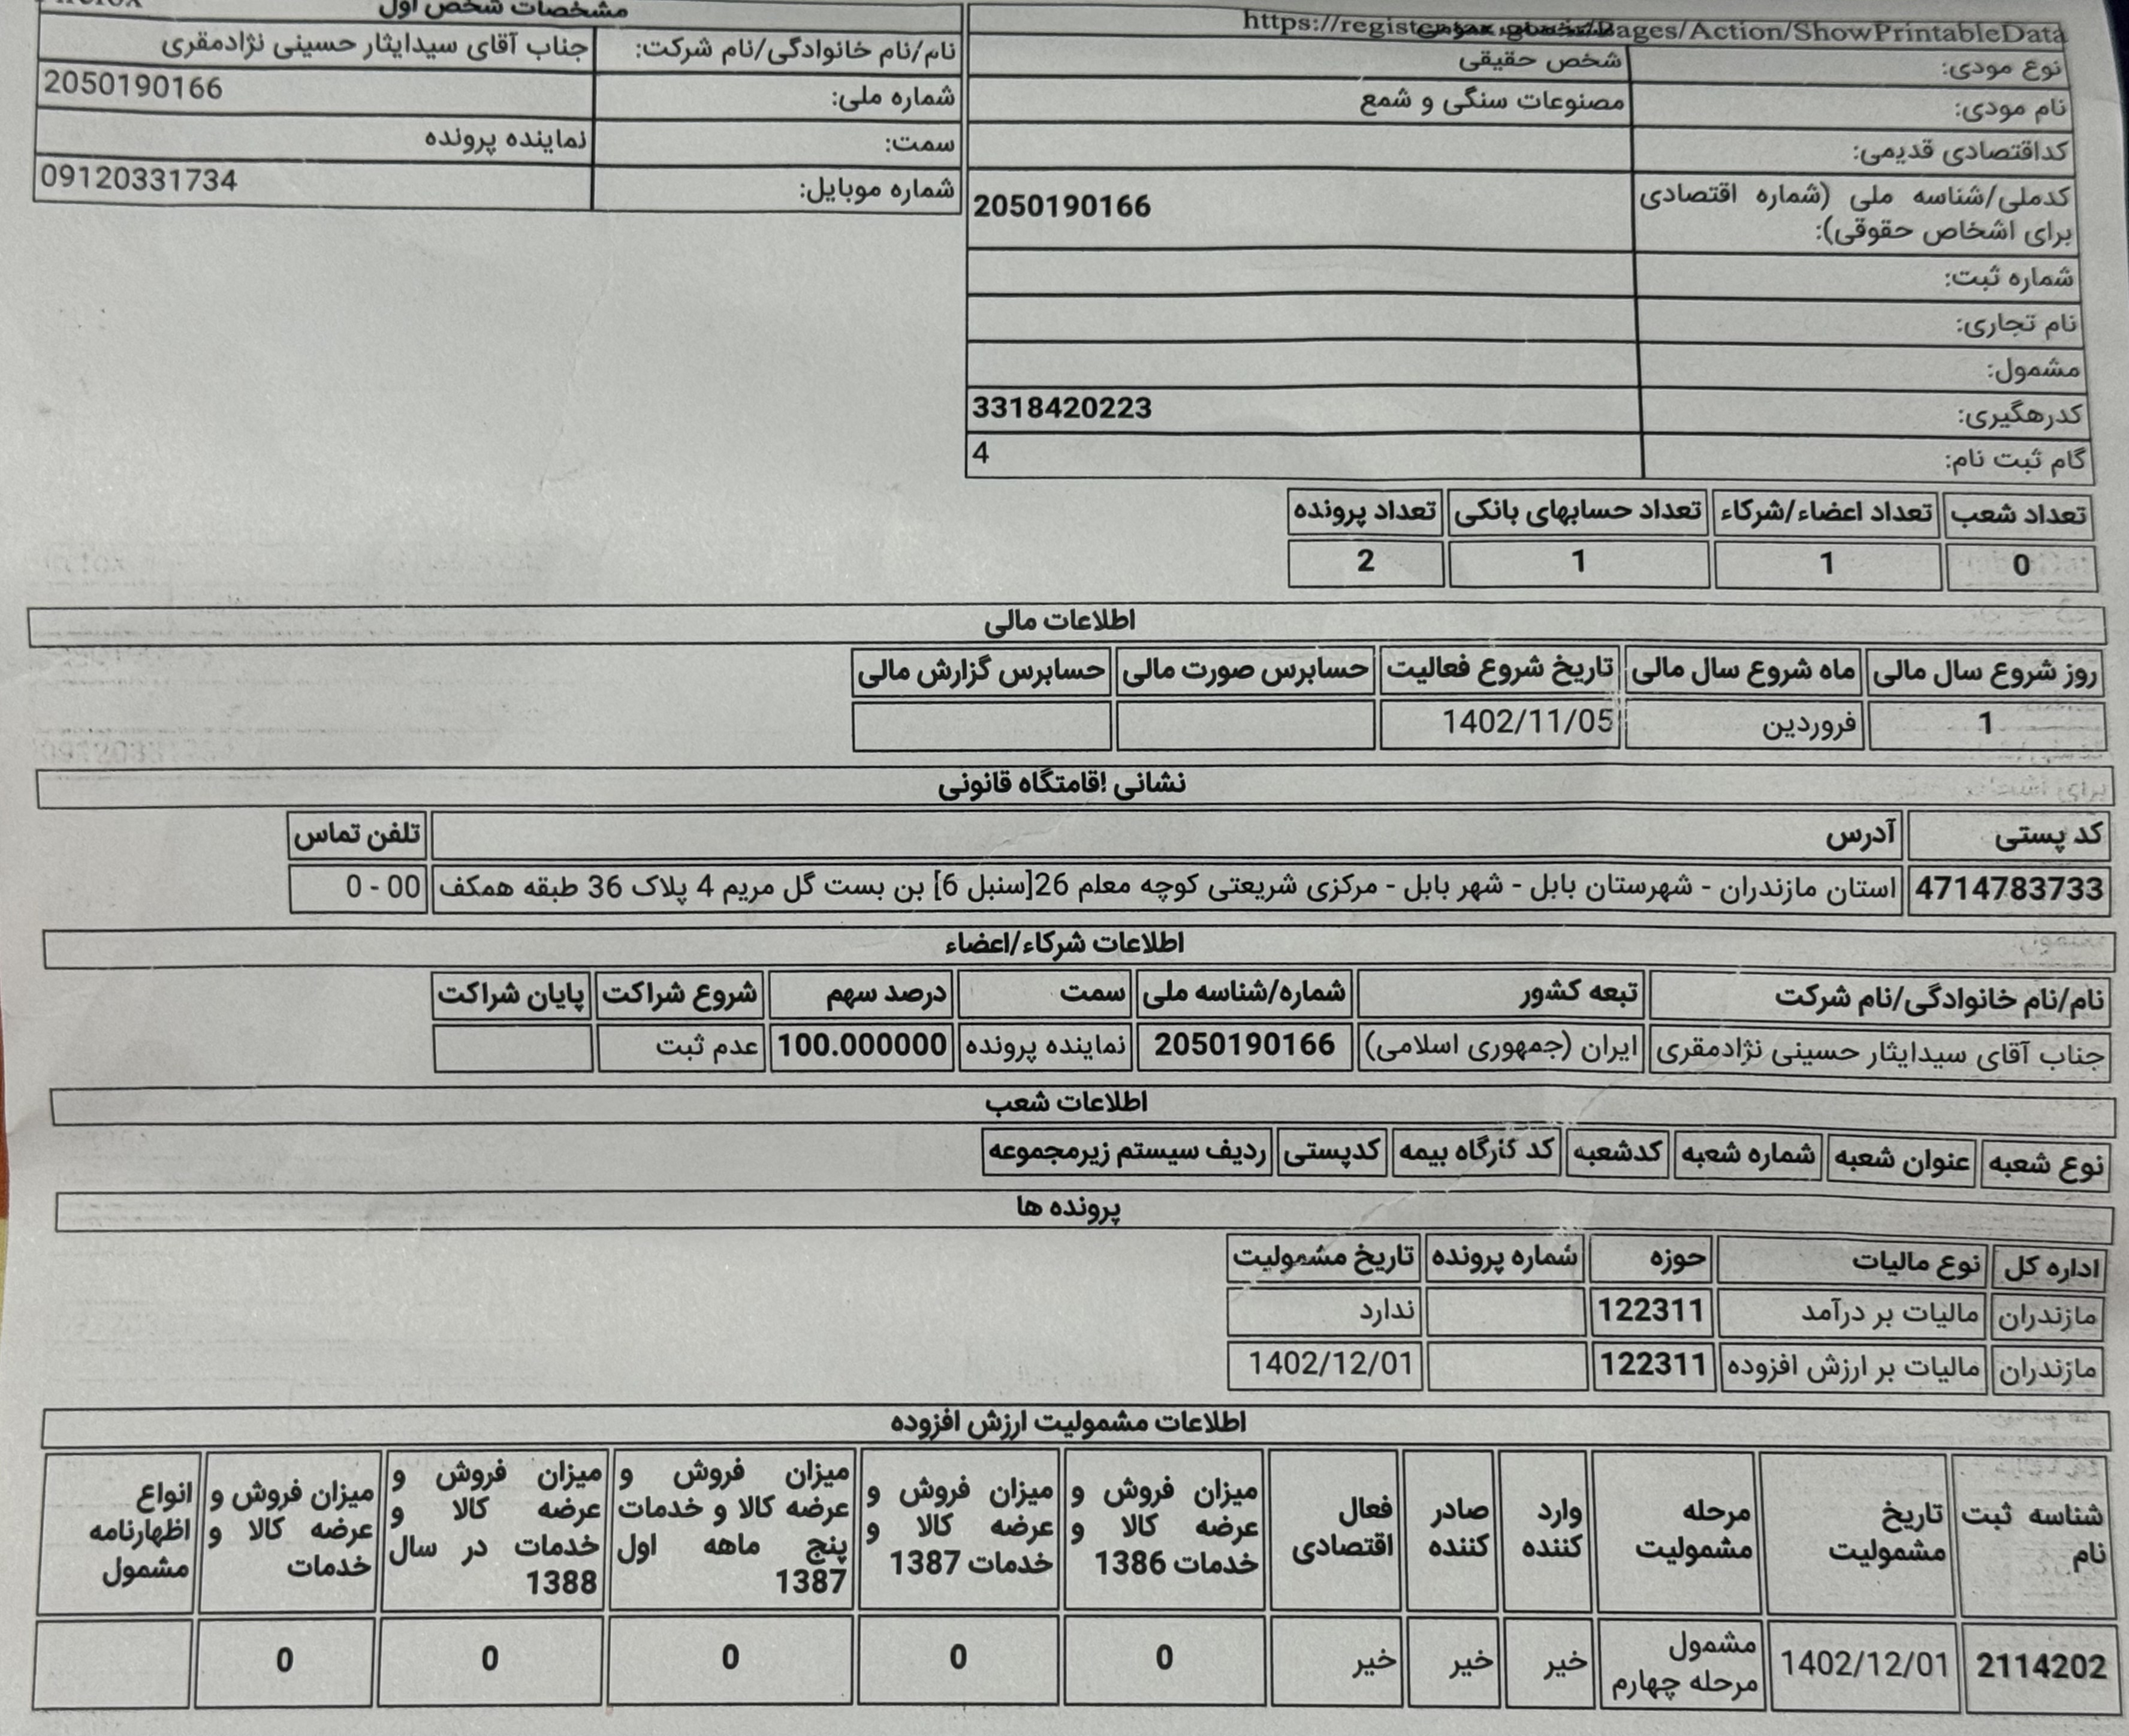 https://register.tax.gov.ir/Pages/Action/ShowPrintableData
نوع مودی: شخص حقیقی
نام مودی: مصنوعات سنگی و شمع
کداقتصادی قدیمی:
کدملی/شناسه ملی (شماره اقتصادی برای اشخاص حقوقی): 2050190166
شماره ثبت:
نام تجاری:
مشمول:
کدرهگیری: 3318420223
گام ثبت نام: 4
مشخصات شخص اول
نام/نام خانوادگی/نام شرکت: جناب آقای سیدایثار حسینی نژادمقری
شماره ملی: 2050190166
سمت: نماینده پرونده
شماره موبایل: 09120331734
تعداد شعب تعداد اعضاء/شرکاء تعداد حسابهای بانکی تعداد پرونده
0 1 1 2
اطلاعات مالی
روز شروع سال مالی ماه شروع سال مالی تاریخ شروع فعالیت حسابرس صورت مالی حسابرس گزارش مالی
1 فروردین 1402/11/05
نشانی اقامتگاه قانونی
کد پستی آدرس تلفن تماس
4714783733 استان مازندران - شهرستان بابل - شهر بابل - مرکزی شریعتی کوچه معلم 26[سنبل 6] بن بست گل مریم 4 پلاک 36 طبقه همکف 00 - 0
اطلاعات شرکاء/اعضاء
نام/نام خانوادگی/نام شرکت تبعه کشور شماره/شناسه ملی سمت درصد سهم شروع شراکت پایان شراکت
جناب آقای سیدایثار حسینی نژادمقری ایران (جمهوری اسلامی) 2050190166 نماینده پرونده 100.000000 عدم ثبت
اطلاعات شعب
نوع شعبه عنوان شعبه شماره شعبه کدشعبه کد کارگاه بیمه کدپستی ردیف سیستم زیرمجموعه
پرونده ها
اداره کل نوع مالیات حوزه شماره پرونده تاریخ مشمولیت
مازندران مالیات بر درآمد 122311 ندارد
مازندران مالیات بر ارزش افزوده 122311 1402/12/01
اطلاعات مشمولیت ارزش افزوده
شناسه ثبت نام تاریخ مشمولیت مرحله مشمولیت وارد کننده صادر کننده فعال اقتصادی میزان فروش و عرضه کالا و خدمات 1386 میزان فروش و عرضه کالا و خدمات 1387 میزان فروش و عرضه کالا و خدمات پنج ماهه اول 1387 میزان فروش و عرضه کالا و خدمات در سال 1388 میزان فروش و عرضه کالا و خدمات انواع اظهارنامه مشمول
2114202 1402/12/01 مشمول مرحله چهارم خیر خیر خیر 0 0 0 0 0